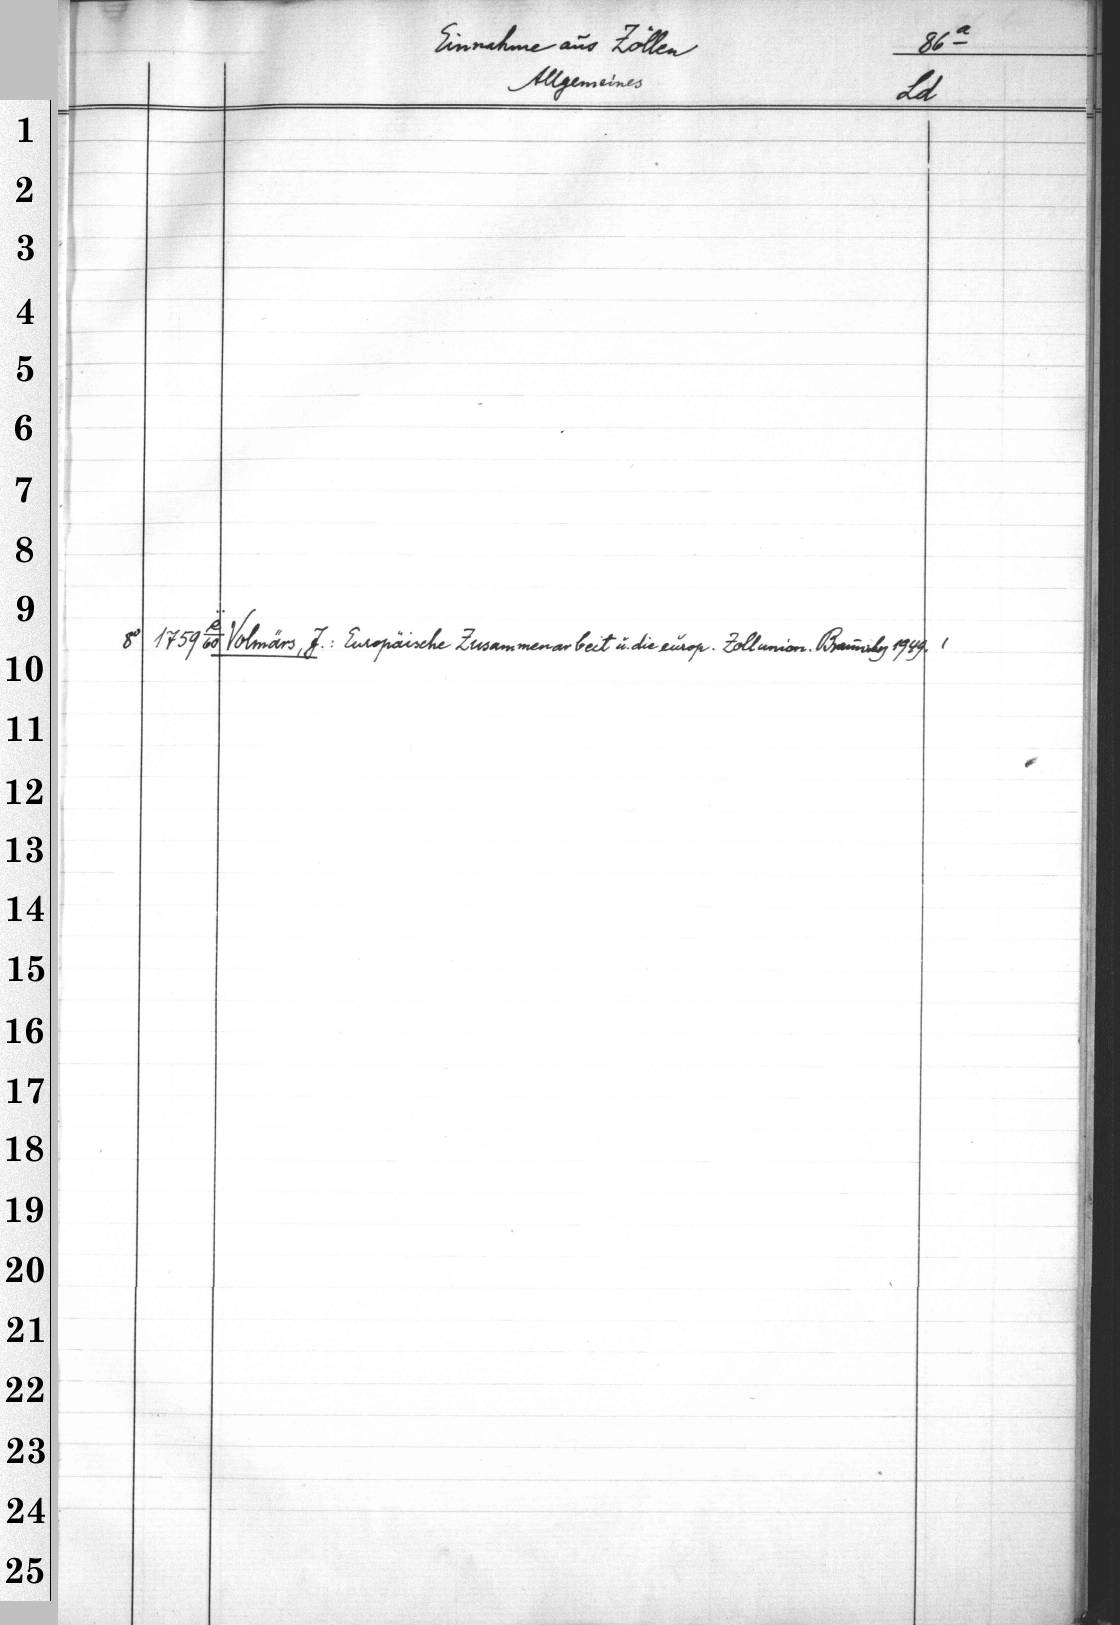 Einnahme aus Zöllen 86a
Allgemeines Ld
1
2
3
4
5
6
7
8
9
8° 1759 Ä/60 Volmärs, J.: Europäische Zusammenarbeit u. die europ. Zollunion. 1949. 1
10
11
12
13
14
15
16
17
18
19
20
21
22
23
24
25